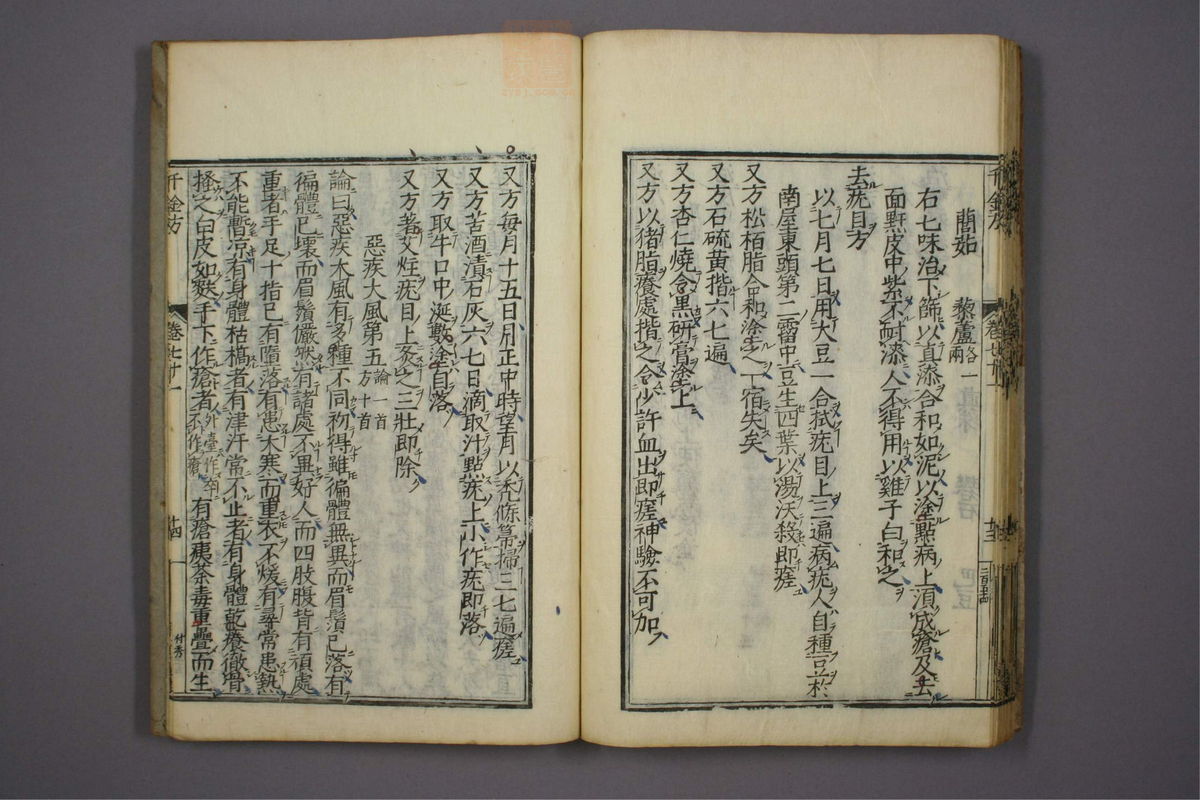 䕡茹　藜蘆各一兩
右七味治下篩以真漆合和如泥以塗點病上須成瘡及去
面黑皮中紫不耐漆人不得用以雞子白和之
去疣目方
以七月七日用大豆一合拭疣目上三遍病疣人自種豆於
南屋東頭第二霤中豆生四葉以湯沃殺即瘥
又方松栢脂合和塗之一宿失矣
又方石硫黃揩六七遍
又方杏仁燒令黑研膏塗上
又方以猪脂癢處揩之令少許血出即瘥神驗不可加
又方每月十五日月正中時望月以禿條箒掃三七遍瘥
又方苦酒漬石灰六七日滴取汁點疣上小作疣即落
又方取牛口中涎數塗自落
又方著艾炷疣目上灸之三壯即除
惡疾大風第五論一首方十首
論曰惡疾大風有多種不同初得雖徧體無異而眉鬚已落有
徧體已壞而眉鬚儼然有諸處不異好人而四肢腹背有頑處
重者手足十指已有墮落有患大寒而重衣不煖有尋常患熱
不能暫凉有身體枯槁者有津汁常不止者有身體乾癢徹骨
搔之白皮如麩手下作瘡者外臺作卒不作瘡有瘡痍荼毒重疊而生
千金方
卷七十一
廿四
付秀